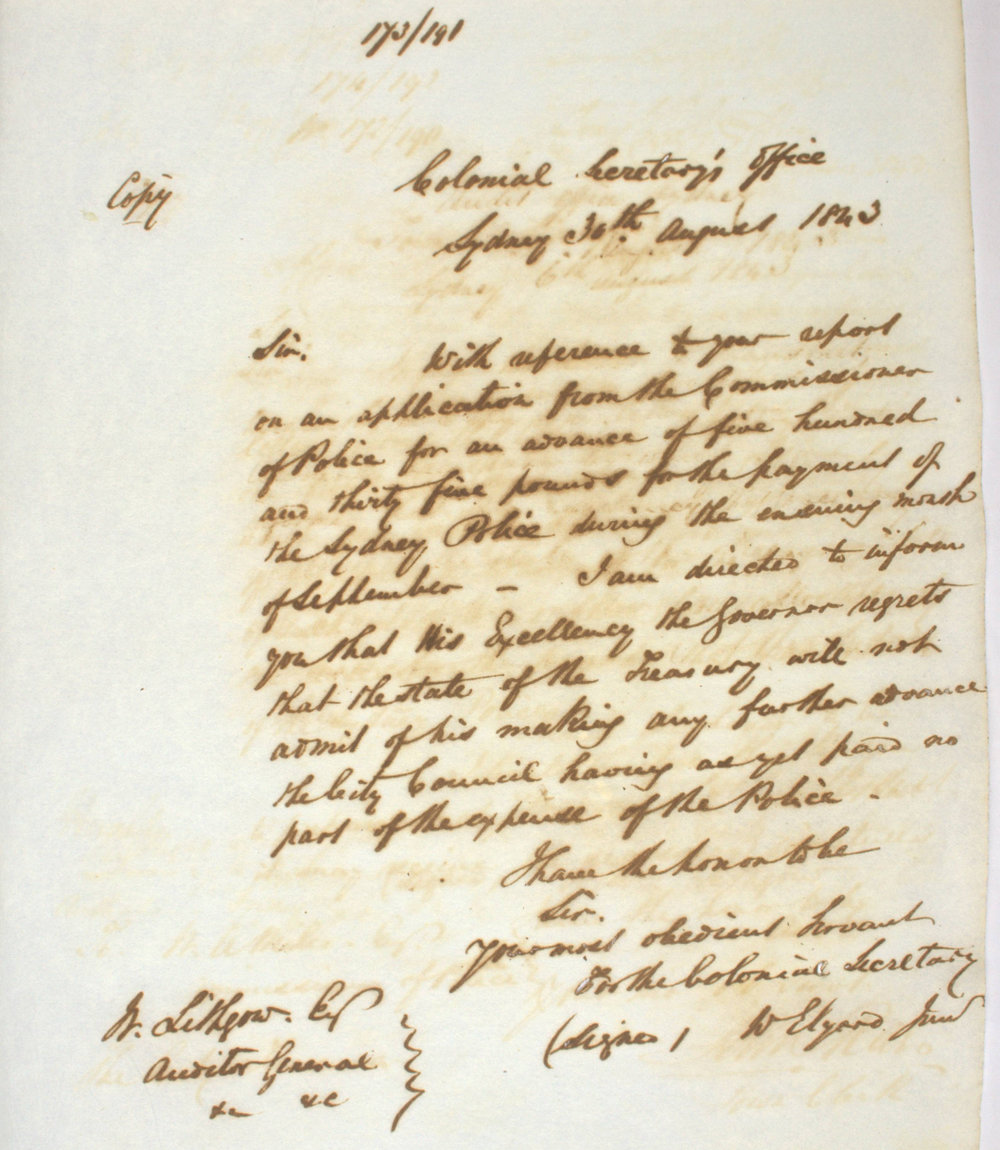 173/191
Copy
Colonial Secretary's Office
Sydney 30th August 1843
Sir.
With reference to your report
on an application from the Commissioner
of Police for an advance of five hundred
and thirty five pounds for the payment of
the Sydney Police during the ensuing month
of September – I am directed to inform
you that His Excellency the Governor regrets
that the state of the Treasury will not
admit of his making any further advance
the City Council having as yet paid no
part of the expense of the Police –
I have the honor to be
Sir.
Your most obedient Servant
For the Colonial Secretary
(Signed) W Elyard Junr
W. Lithgow. Esq
Auditor General
&c &c